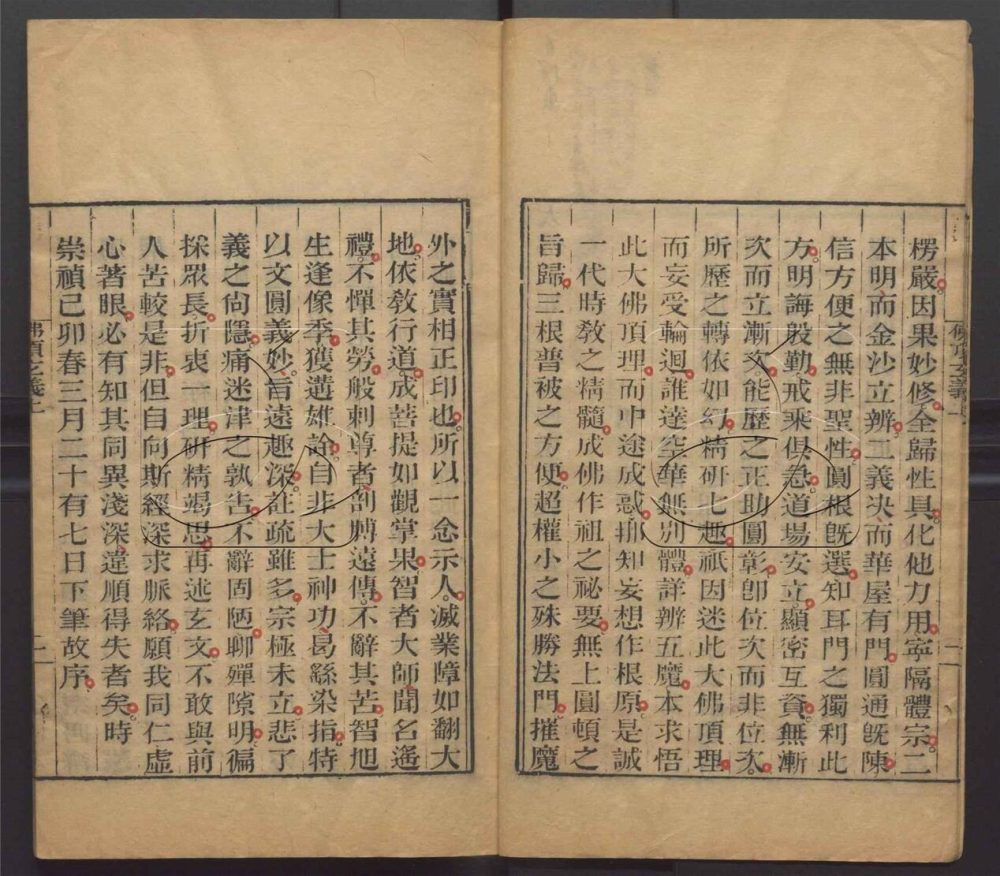 楞嚴因果妙修全歸性具化他力用寧隔體宗二
本明而金沙立辨二義決而華屋有門圓通旣陳
信方便之無非聖性圓根旣選知耳門之獨利此
方明誨殷勤戒乘俱急道場安立顯密互資無漸
次而立漸次能歷之正助圓彰卽位次而非位次
所歷之轉依如幻精研七趣祇因迷此大佛頂理
而妄受輪迴誰達空華無別體詳辨五魔本求悟
此大佛頂理而中途成惑那知妄想作根原是誠
一代時敎之精髓成佛作祖之祕要無上圓頓之
旨歸三根普被之方便超權小之殊勝法門摧魔
佛頂玄義
一
外之實相正印也所以一念示人滅業障如翻大
地依敎行道成菩提如觀掌果智者大師聞名遙
禮不憚其勞般剌尊者剖膊遠傳不辭其苦智旭
生逢像季獲遘雄詮自非大士神功曷繇染指特
以文圓義妙旨遠趣深註疏雖多宗極未立悲了
義之尙隱痛迷津之孰告不辭固陋聊殫隙明徧
採眾長折衷一理硏精竭思再述玄文不敢與前
人苦較是非但自向斯經深求脈絡願我同仁虛
心著眼必有知其同異淺深違順得失者矣時
崇禎己卯春三月二十有七日下筆故序
佛頂玄義上
二